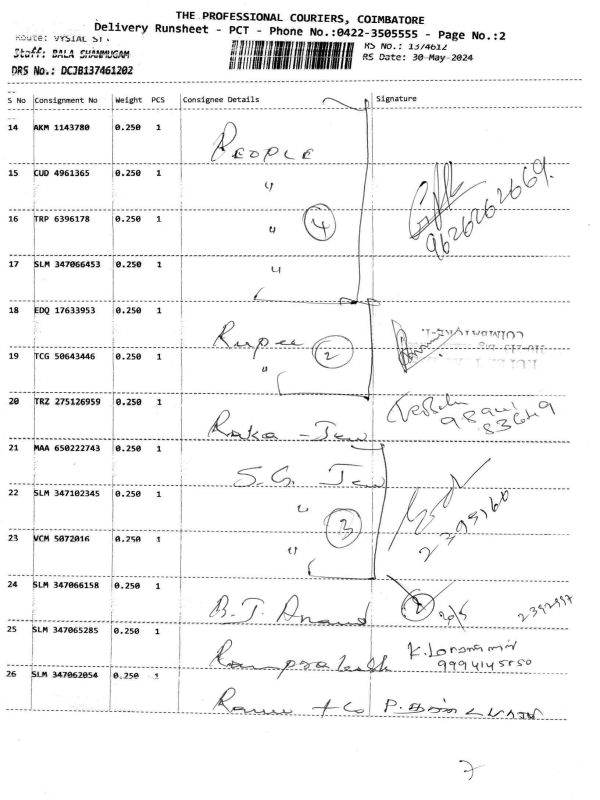 THE PROFESSIONAL COURIERS, COIMBATORE
Delivery Runsheet - PCT - Phone No.:0422-3505555 - Page No.:2
Route: VYSIAL ST.
RS No.: 1374612
Staff: BALA SHANMUGAM
RS Date: 30-May-2024
DRS No.: DCJB137461202
S No Consignment No Weight PCS Consignee Details Signature
14 AKM 1143780 0.250 1 PEOPLE
15 CUD 4961365 0.250 1 "
16 TRP 6396178 0.250 1 " 4 9626262669.
17 SLM 347066453 0.250 1 "
18 EDQ 17633953 0.250 1 Rupee 2
COIMBATORE-1.
19 TCG 50643446 0.250 1 "
20 TRZ 275126959 0.250 1 Raka - Jew 98941 83649
21 MAA 650222743 0.250 1 S.G. Jew
22 SLM 347102345 0.250 1 "
23 VCM 5072016 0.250 1 " 3 2395760
24 SLM 347066158 0.250 1 B.J. Anand 2392997
25 SLM 347065285 0.250 1 Ramprakash
26 SLM 347062054 0.250 1 + Co P.
7